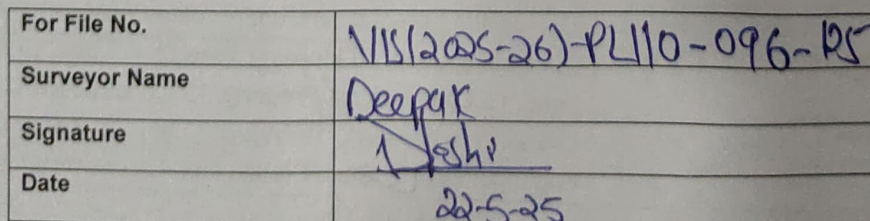 For File No. VIS(2025-26)-PL110-096-125
Surveyor Name Deepak
Signature Joshi
Date 22-5-25